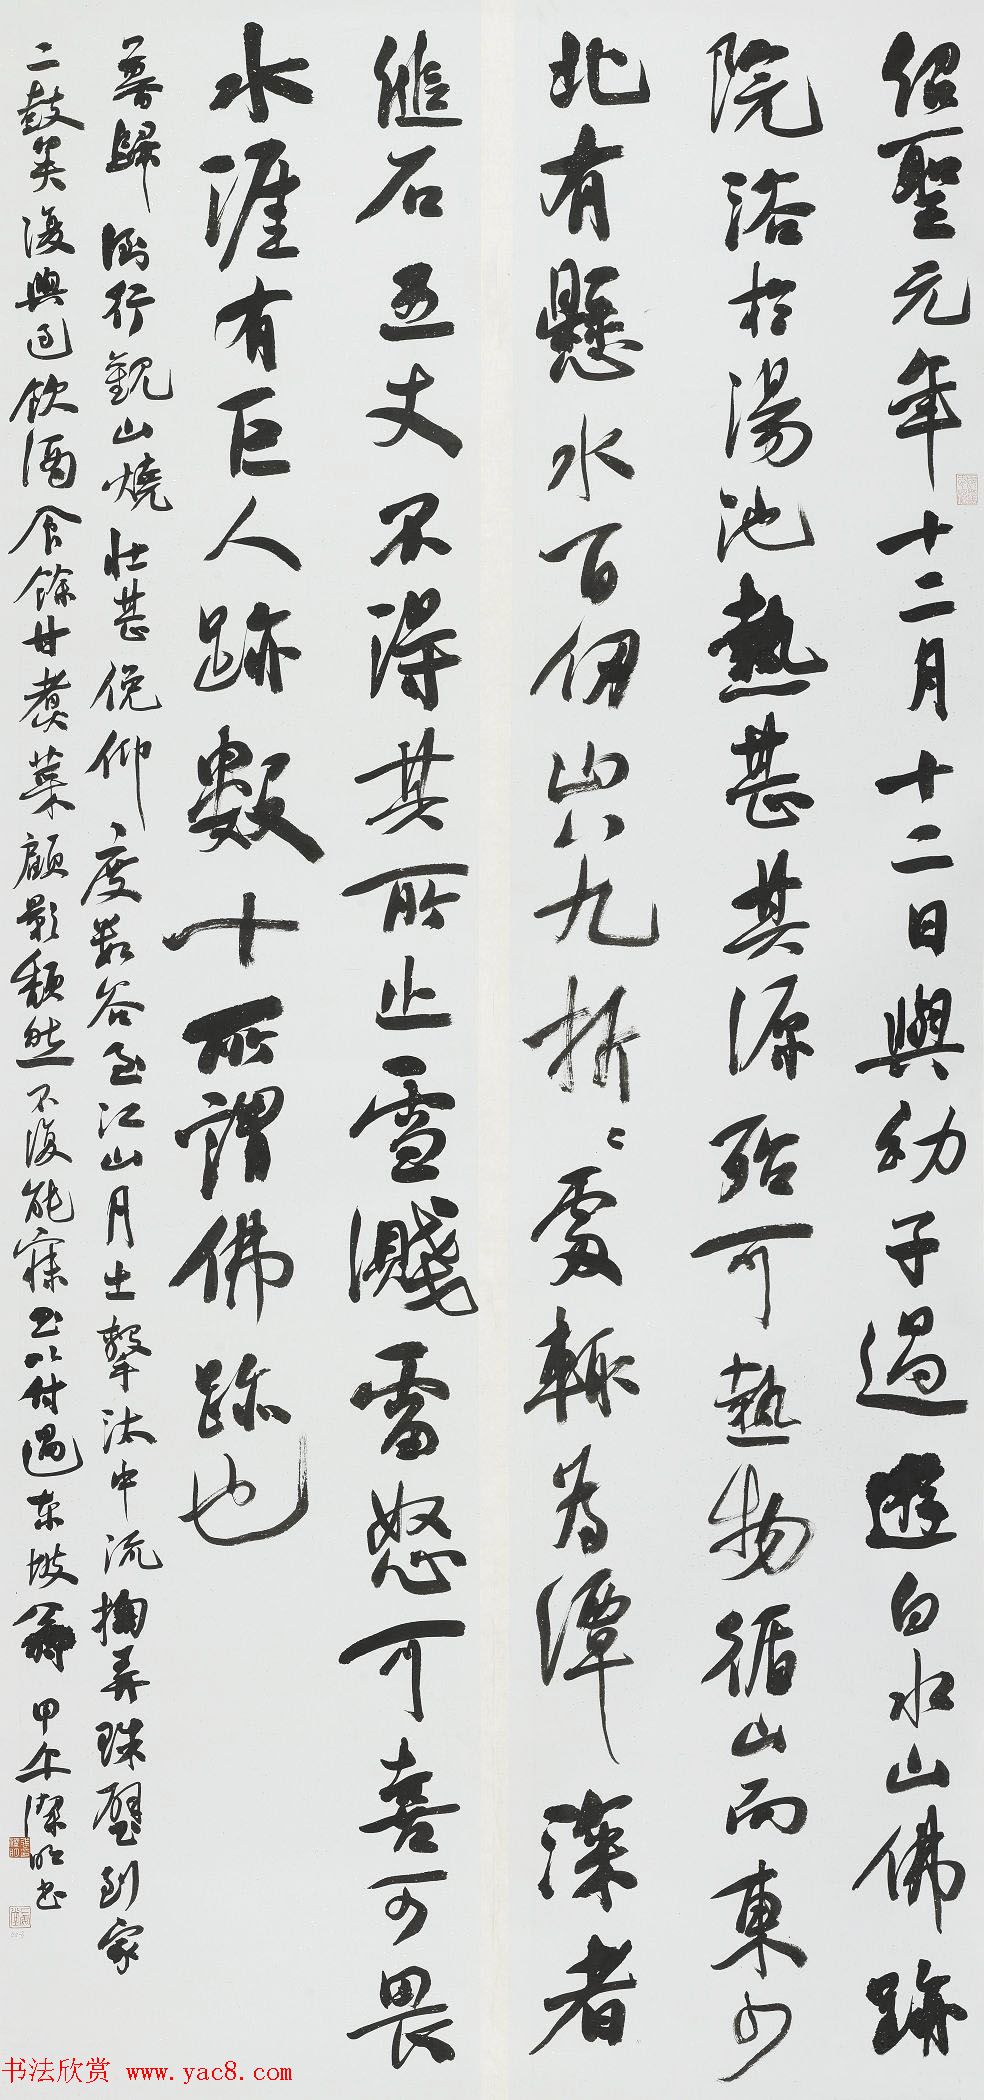 紹聖元年十二月十二日與幼子過遊白水山佛跡
院浴於湯池熱甚其源殆可熟物循山而東少
北有懸水百仞山八九折折處輒為潭深者
縋石五丈不得其所止雪濺雷怒可喜可畏
水涯有巨人跡數十所謂佛跡也
暮歸倒行觀山燒壯甚俛仰度數谷至江山月出擊汰中流掬弄珠璧到家
二鼓矣復與過飲酒食餘甘煮菜顧影頹然不復能寐書以付過東坡翁 甲午潔明書
书法欣赏 www.yac8.com